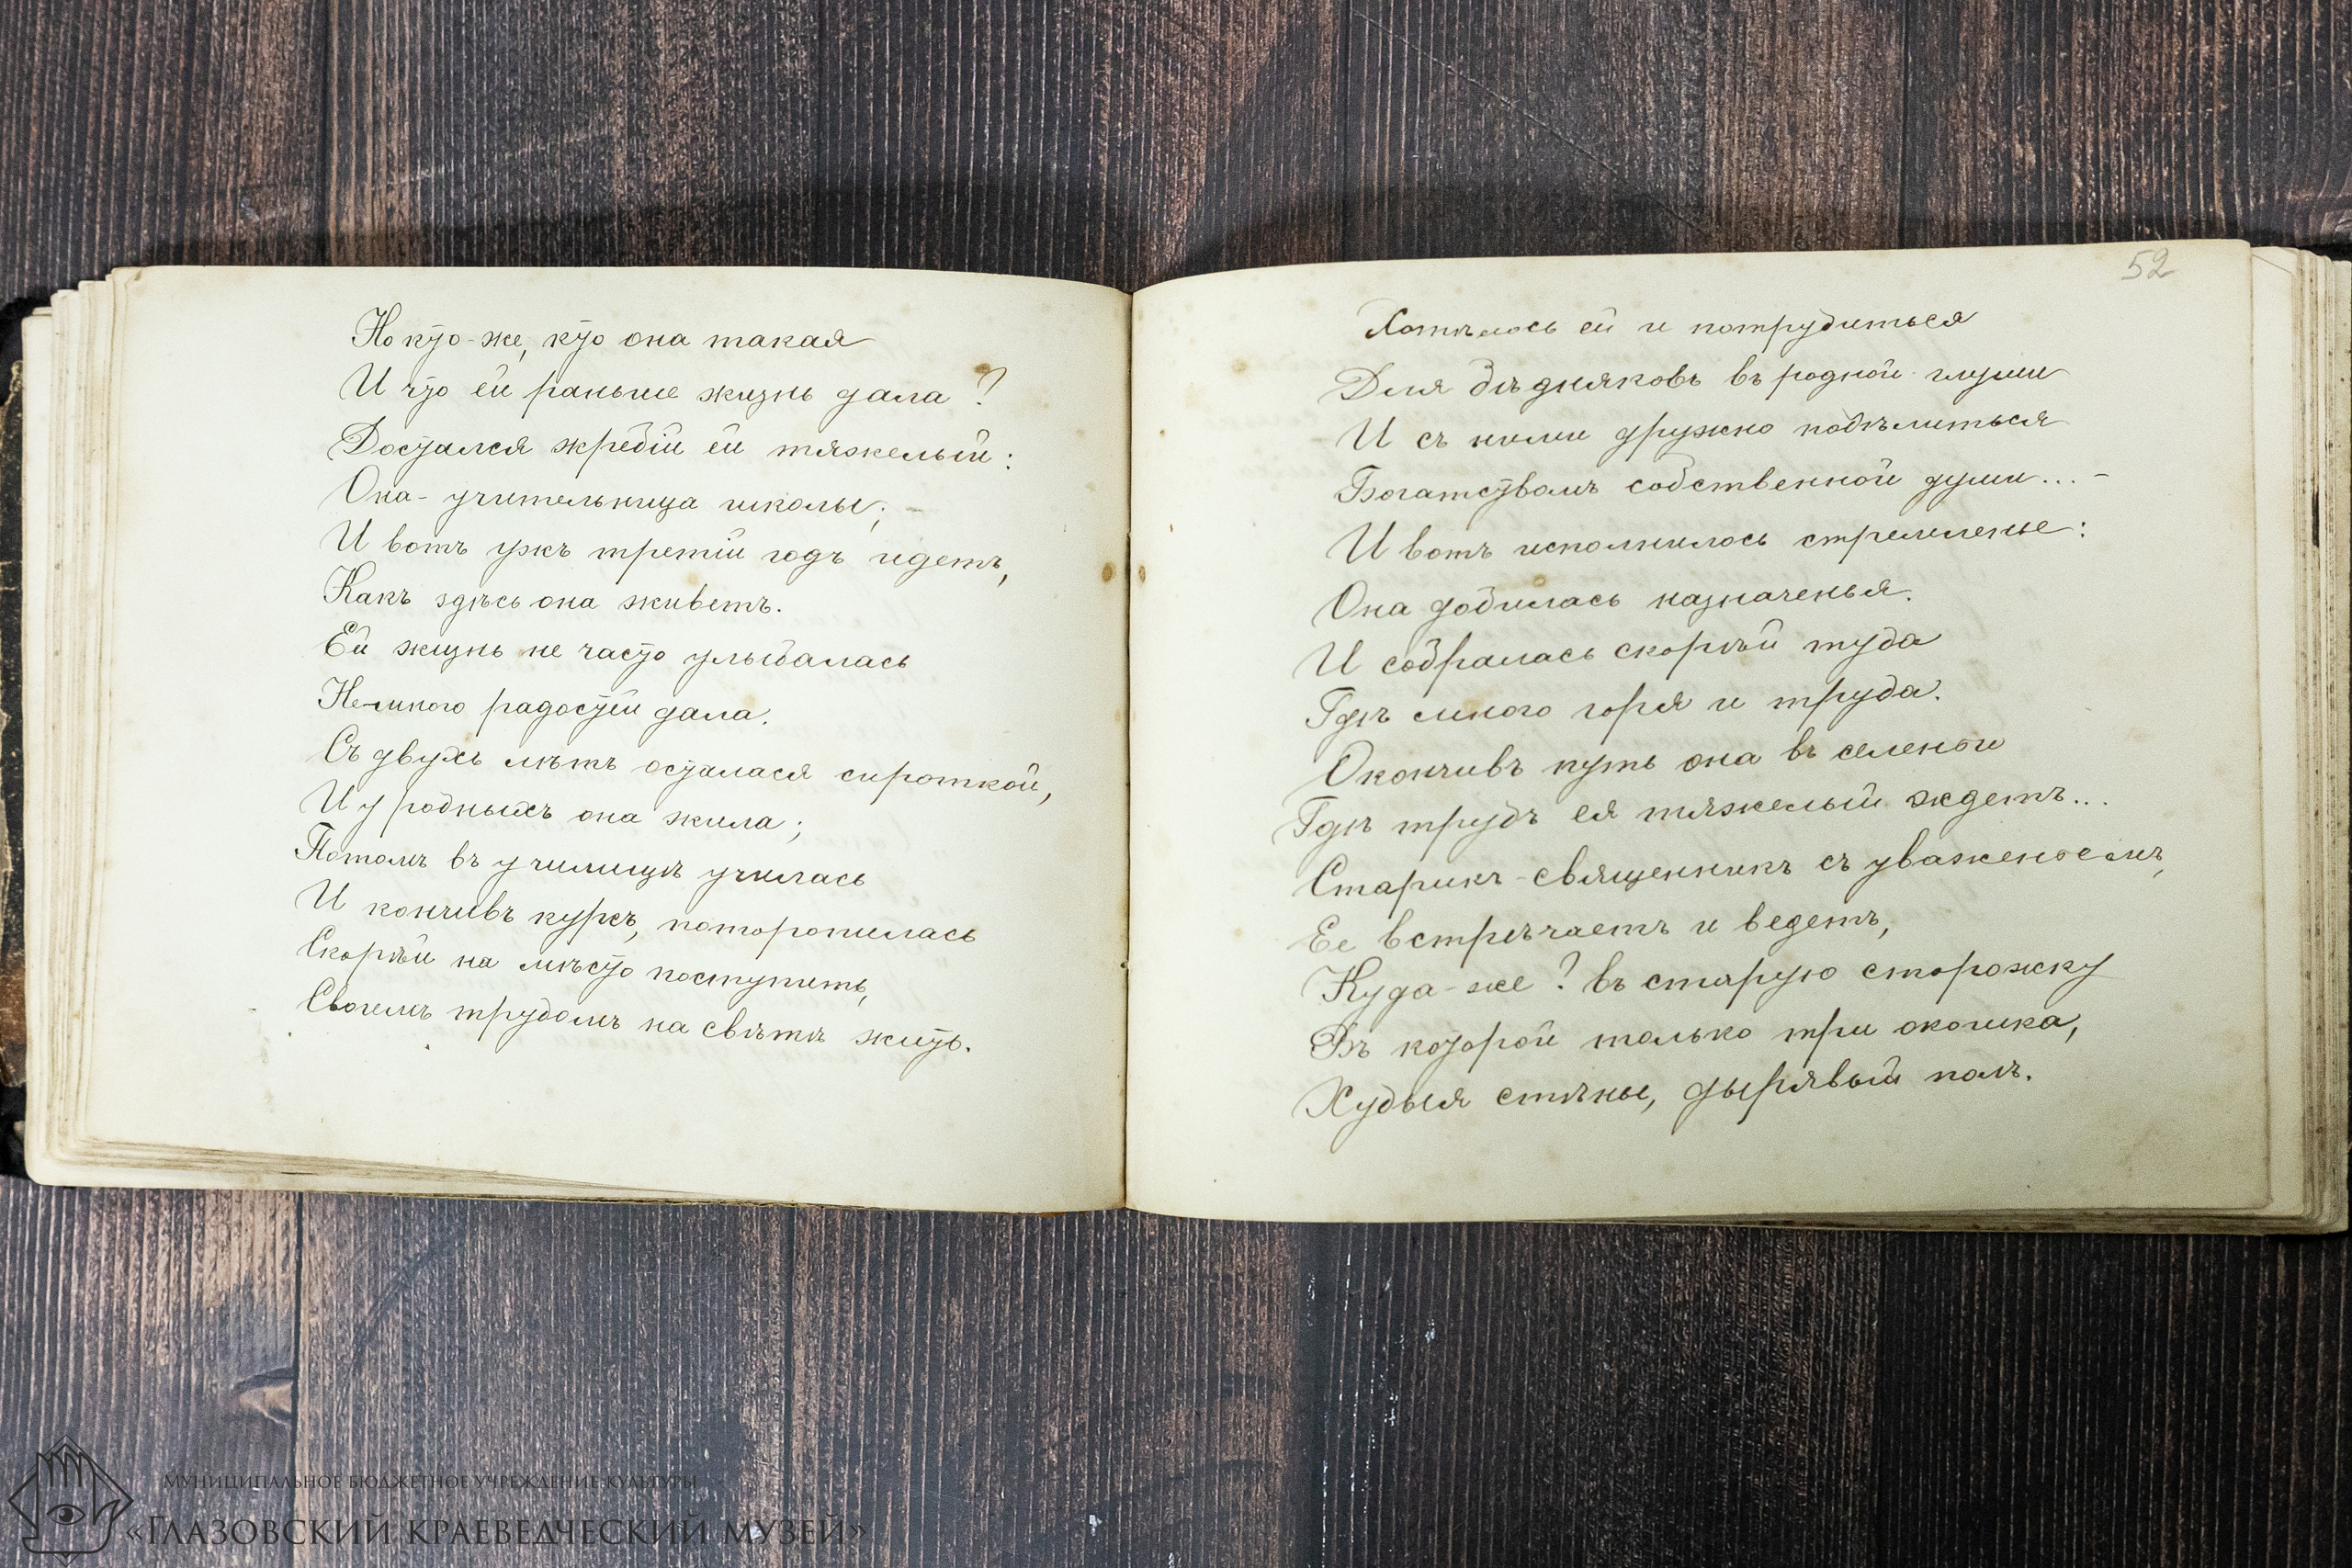 Но кто-же, кто она такая
И что ей раньше жизнь дала?
Достался жребій ей тяжелый:
Она - учительница школы; -
И вотъ ужъ третій годъ идетъ,
Какъ здѣсь она живетъ.
Ей жизнь не часто улыбалась
Немного радостей дала.
Съ двухъ лѣтъ осталася сироткой,
И у родныхъ она жила;
Потомъ въ училищѣ училась
И кончивъ курсъ, поторопилась
Скорѣй на мѣсто поступить,
Своимъ трудомъ на свѣтѣ жить.
52
Хотѣлось ей и потрудиться
Для бѣдняковъ въ родной глуши
И съ ними дружно подѣлиться
Богатствомъ собственной души... -
И вотъ исполнилось стремленье:
Она добилась назначенья.
И собралась скорѣй туда
Гдѣ много горя и труда.
Окончивъ путь она въ селеньи
Гдѣ трудъ ея тяжелый ждетъ...
Старикъ-священникъ съ уваженьемъ,
Ее встрѣчаетъ и ведетъ,
Куда-же? въ старую сторожку
Въ которой только три окошка,
Худыя стѣны, дырявый полъ.
Муниципальное бюджетное учреждение культуры
«Глазовский краеведческий музей»